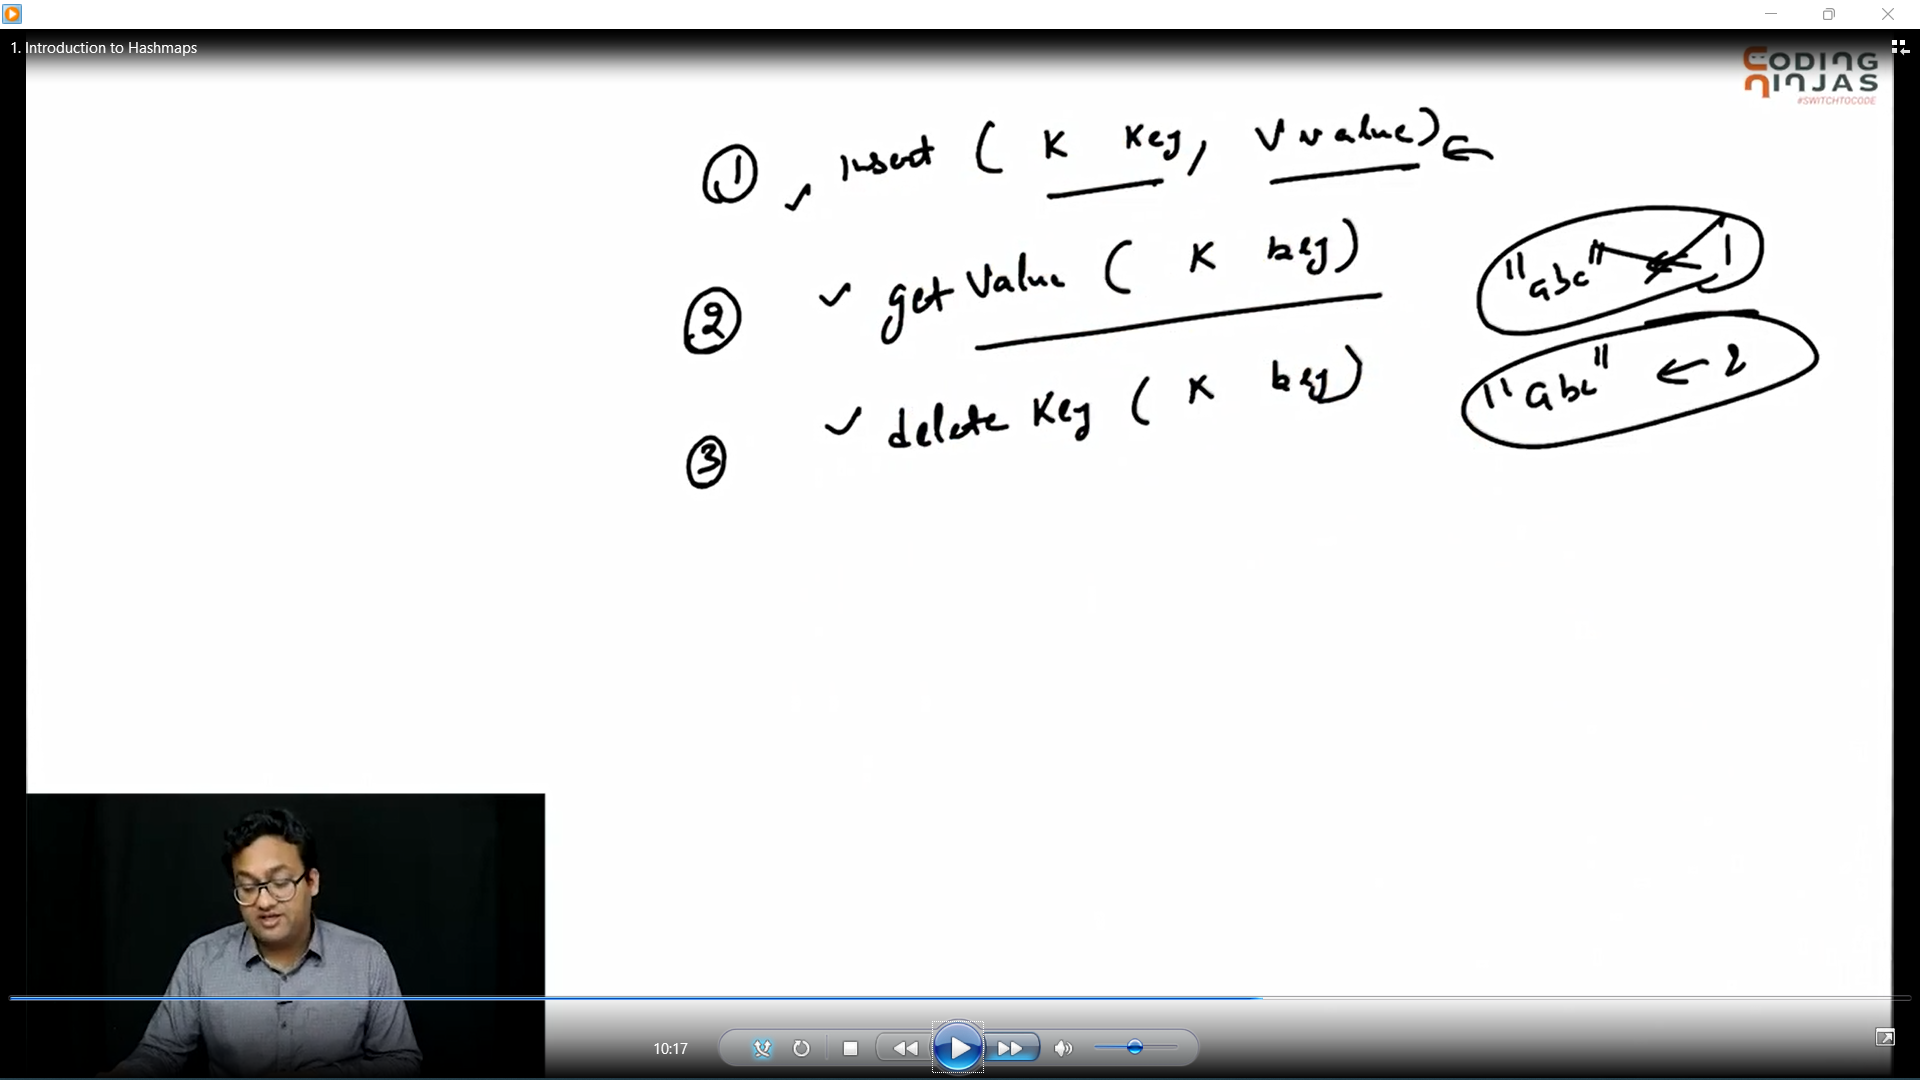 1. Introduction to Hashmaps
CODING
NINJAS
#SWITCHTOCODE
① ✓ insert ( K Key, V value) ←
② ✓ getValue ( K key)
"abc" ← 1
③ ✓ delete Key ( K key)
"abc" ← 2
10:17